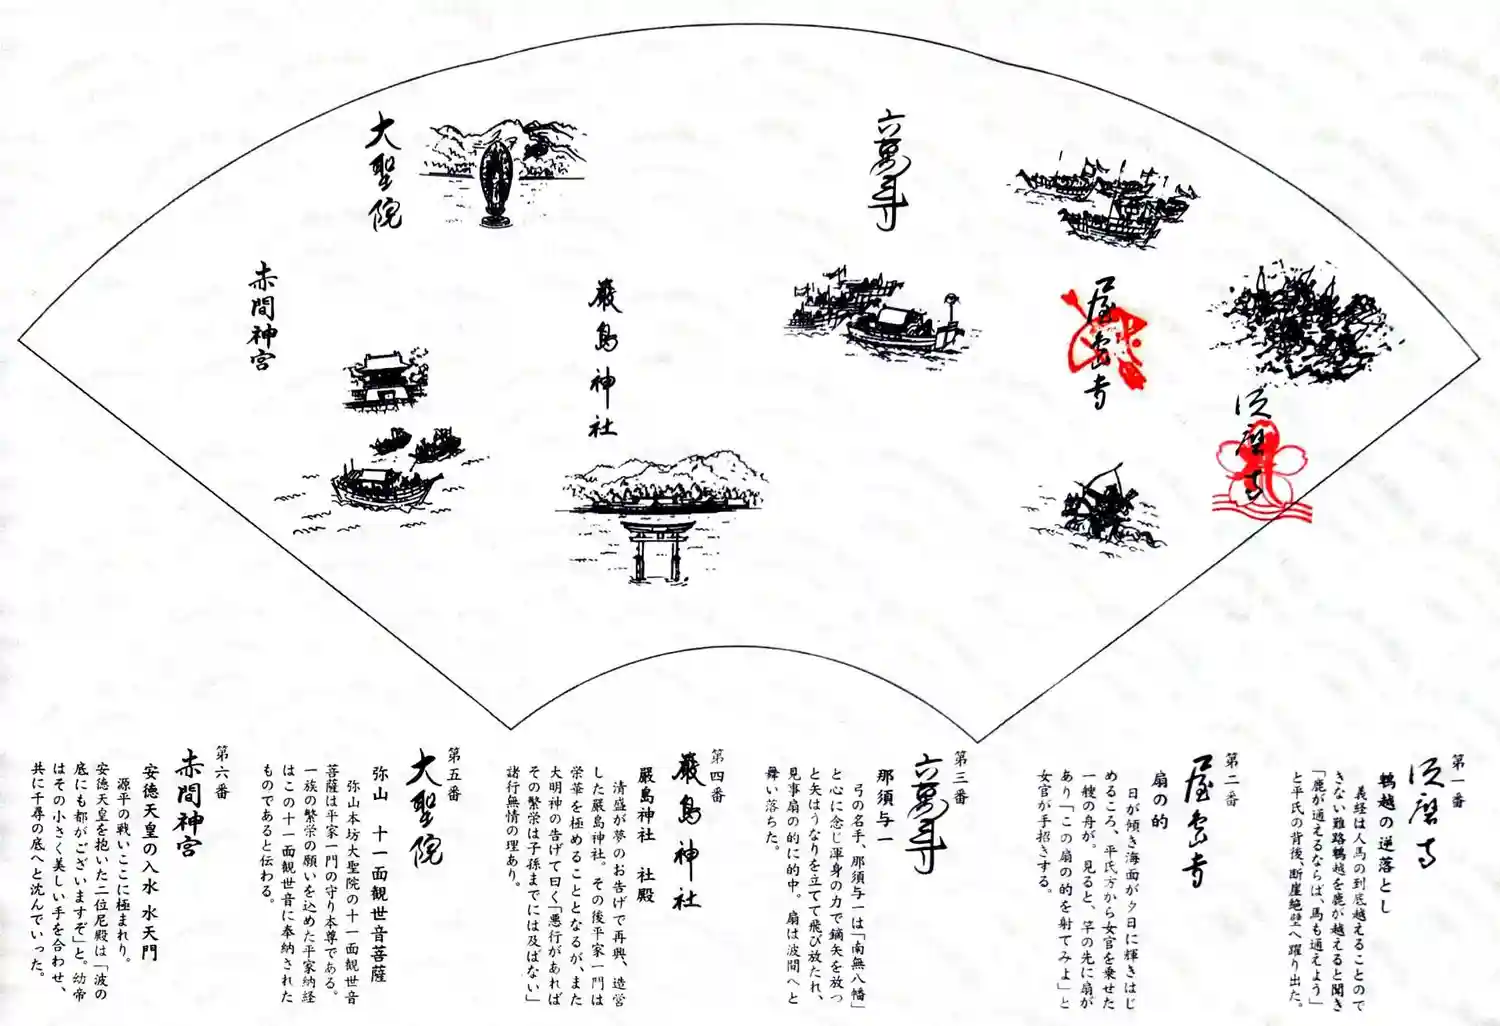 須磨寺
屋島寺
六萬寺
嚴島神社
大聖院
赤間神宮
第一番
須磨寺
鵯越の逆落とし
義経は人馬の到底越えることので
きない難路鵯越を鹿が越えると聞き
「鹿が通えるならば、馬も通えよう」
と平氏の背後、断崖絶壁へ躍り出た。
第二番
屋島寺
扇の的
日が傾き海面が夕日に輝きはじ
めるころ、平氏方から女官を乗せた
一艘の舟が。見ると、竿の先に扇が
あり「この扇の的を射てみよ」と
女官が手招きする。
第三番
六萬寺
那須与一
弓の名手、那須与一は「南無八幡」
と心に念じ渾身の力で鏑矢を放つ
と矢はうなりを立てて飛び放たれ、
見事扇の的に的中。扇は波間へと
舞い落ちた。
第四番
嚴島神社
嚴島神社 社殿
清盛が夢のお告げで再興、造営
した厳島神社。その後平家一門は
栄華を極めることとなるが、また
大明神の告げて曰く「悪行があれば
その繁栄は子孫までには及ばない」
諸行無情の理あり。
第五番
大聖院
弥山 十一面観世音菩薩
弥山本坊大聖院の十一面観世音
菩薩は平家一門の守り本尊である。
一族の繁栄の願いを込めた平家納経
はこの十一面観世音に奉納された
ものであると伝わる。
第六番
赤間神宮
安徳天皇の入水 水天門
源平の戦いここに極まれり。
安徳天皇を抱いた二位尼殿は「波の
底にも都がございますぞ」と。幼帝
はその小さく美しい手を合わせ、
共に千尋の底へと沈んでいった。